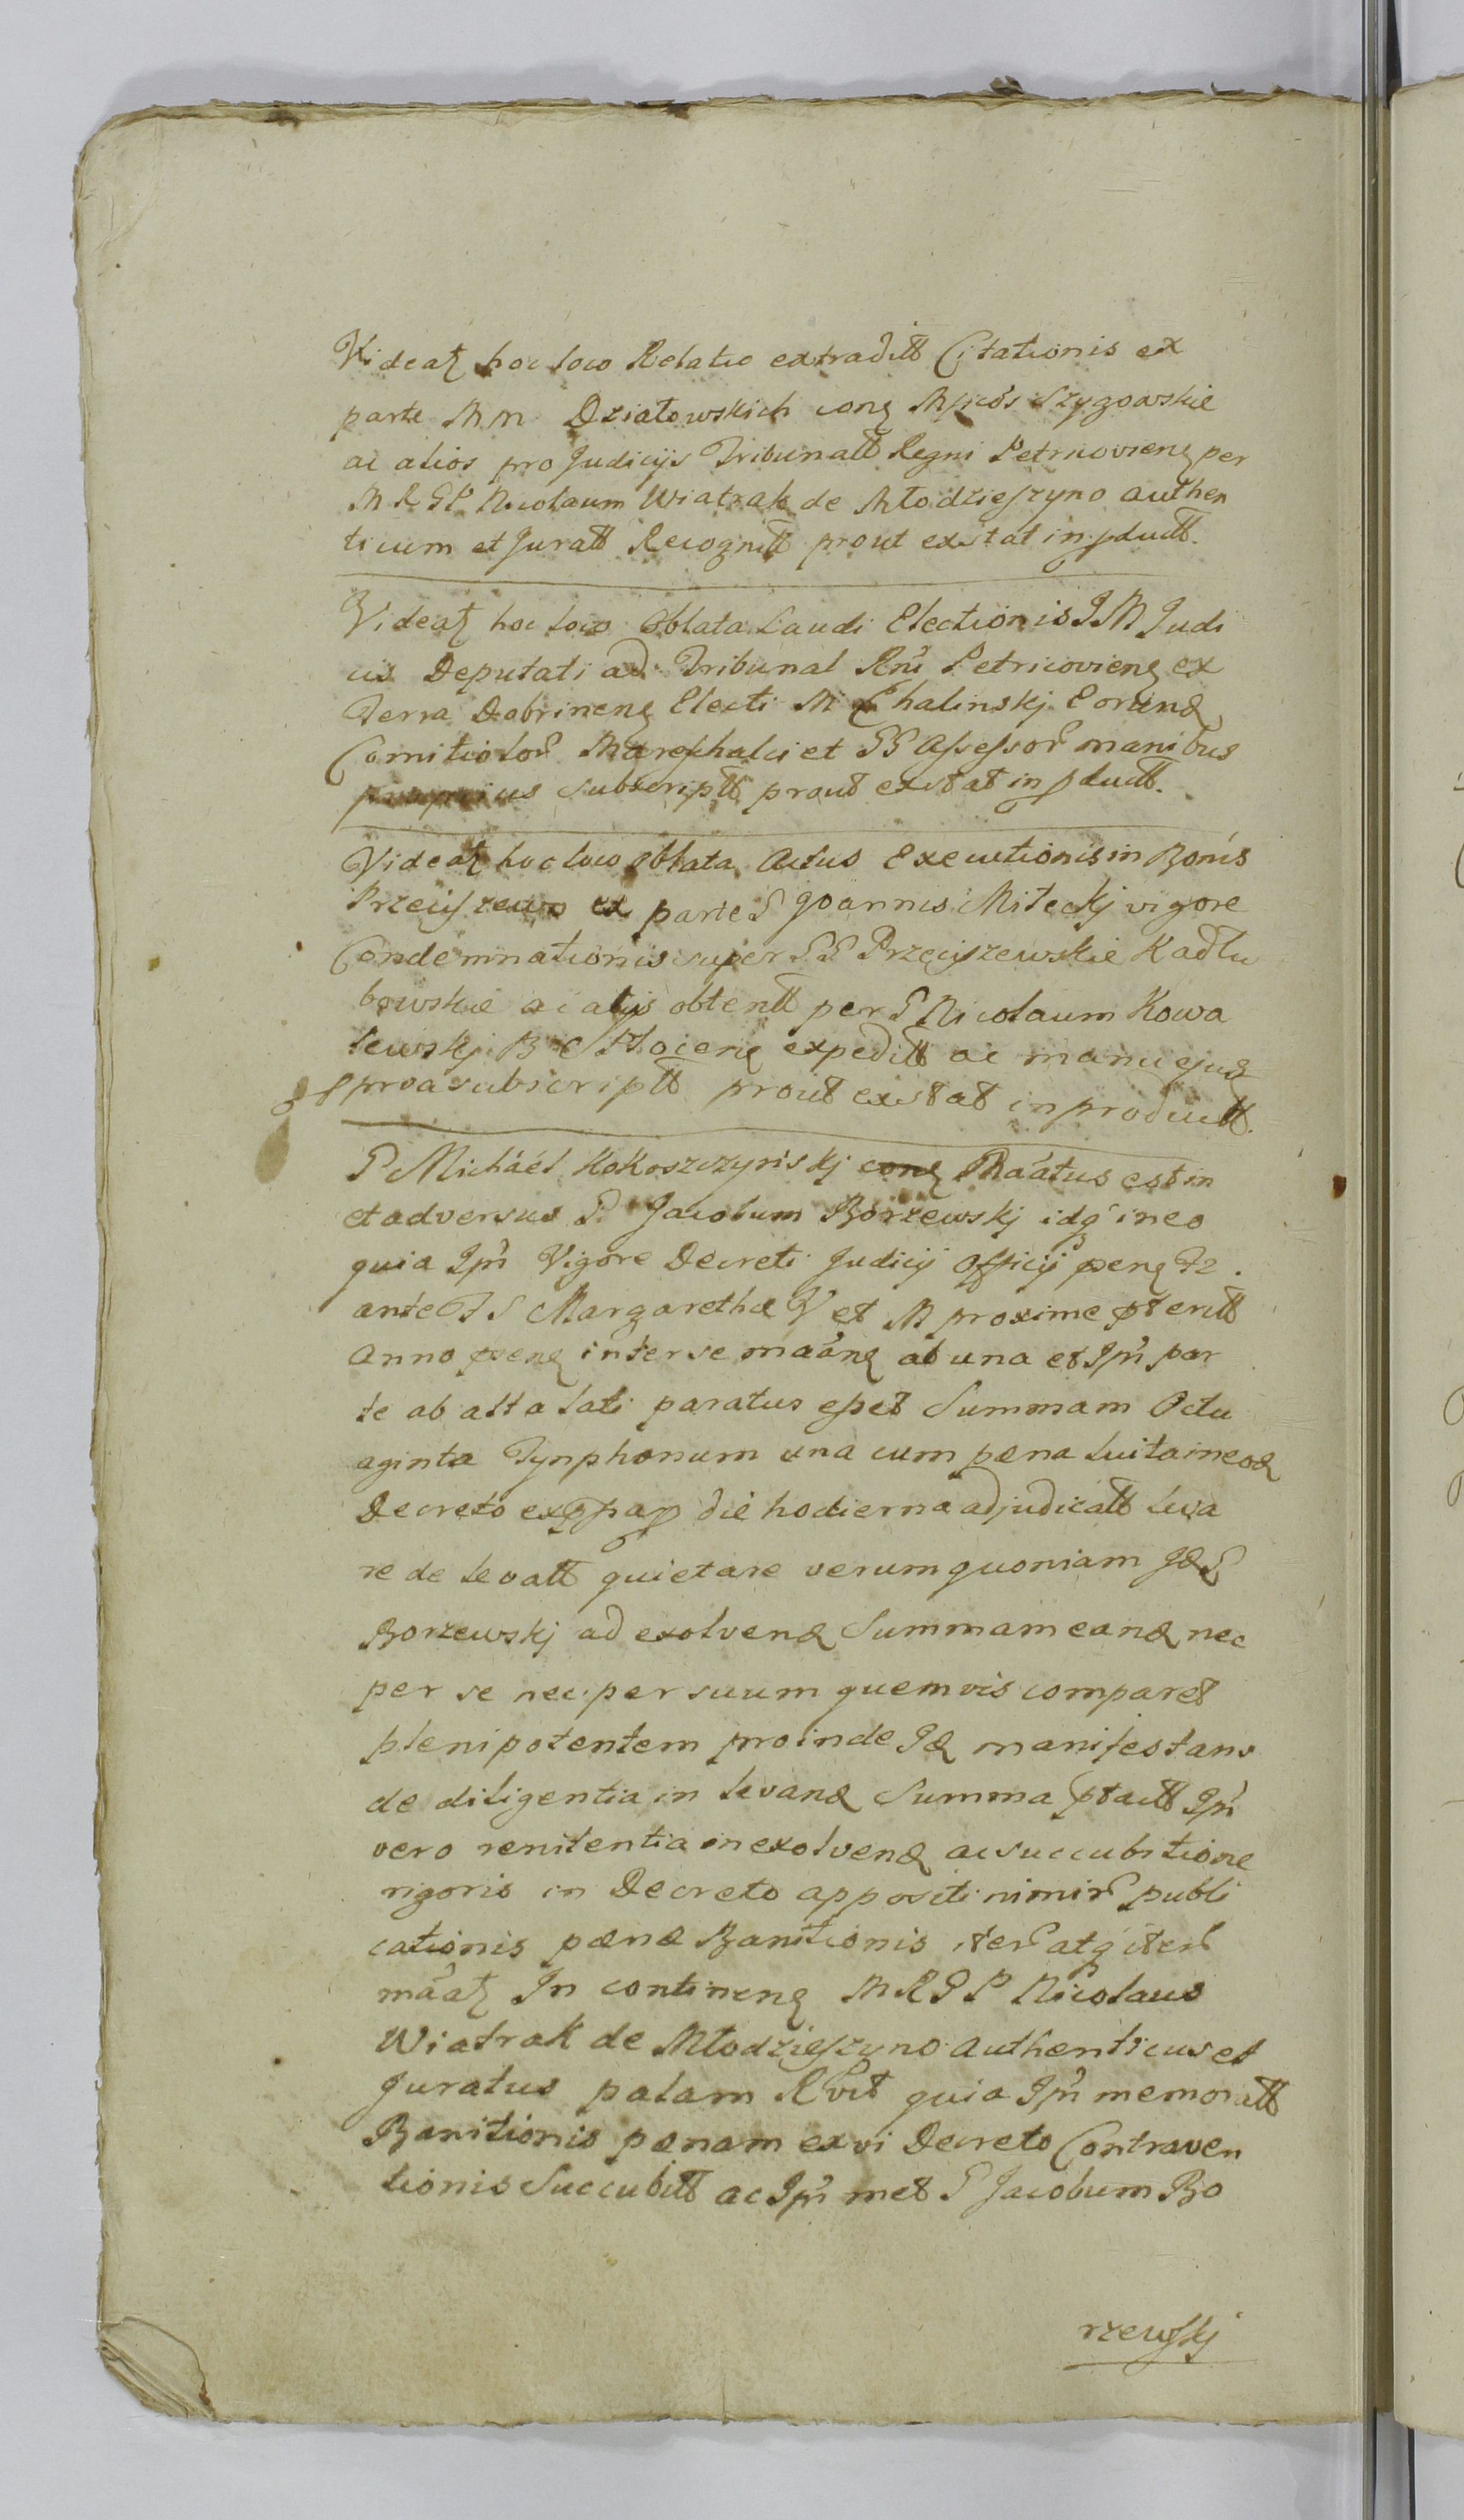 Videatz hoc loco Relatio extraditt Citationis ex
parte M m Działowskich conq Mficós Szygowskie
ac alios pro Judicijs Tribunatt Regni Petricovienq per
M R G P Nicolaum Wiatrak de Młodzieszyno authen
ticum et Juratt Recognitt prout exstat in pductt.
Videatz hoc loco Oblata Laudi Electionis I M Judi
cis Deputati ad Tribunal Rni Petricovienq ex
Terra Dobrinenq Electi M Chalinskj Eorundq
Comitiolor Mareschalci et GG Assessor manibus
subscriptt prout exstat in pductt.
Videatz hoc loco oblata Actus Executionis in Bonis
Przeciszewo ex parte G Joannis Miteckj vigore
Condemnationis super GG Przeciszewskie Kadłu
bowskie ac alijs obtentt per G Nicolaum Kowa
lewskj B C Plocenq expeditt ac manu ejusq
pproa subscriptt prout exstat in productt.
P Michaël Kokoszczynskj Maatus est in
et adversus P. Jacobum Borzewskj idq ineo
quia Ipn Vigore Decreti Judicij Officij psenq F2.
ante F S Margarethæ V et M proxime pteritt
Anno psenq inter se maanq ab una et Ipn par
te ab alta lati paratus esset Summam Octu
aginta Tynphonum una cum pæna luita in eodq
Decreto exppap die hodierna adjudicatt leva
re de levatt quietare verum quoniam Idq G
Borzewskj ad exolvendq Summam eandq nec
per se nec per suum quemvis comparet
plenipotentem proinde Idq manifestans
de diligentia in levandq Summa ptactt Ipn
vero renitentia in exolvendq ac succubitione
rigoris in Decreto appositi nimir publi
cationis pænæ Banitionis iter atq iter
maatz In continenq M R G P Nicolaus
Wiatrak de Młodzieszyno Authenticus et
Juratus palam Rvit quia Ipn memoratt
Banitionis pænam ex vi Decreto Contraven
tionis Succubitt ac Ipn met G Jacobum Bo
rzewskj